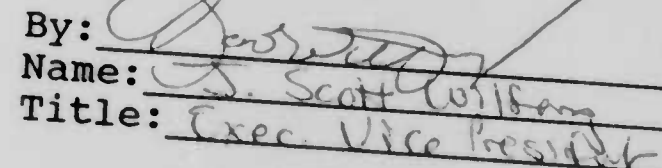 By:
Name: J. Scott Wilson
Title: Exec. Vice President